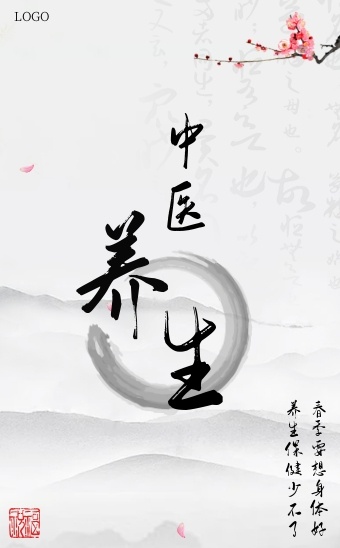 LOGO
中医
养生
春季要想身体好
养生保健少不了